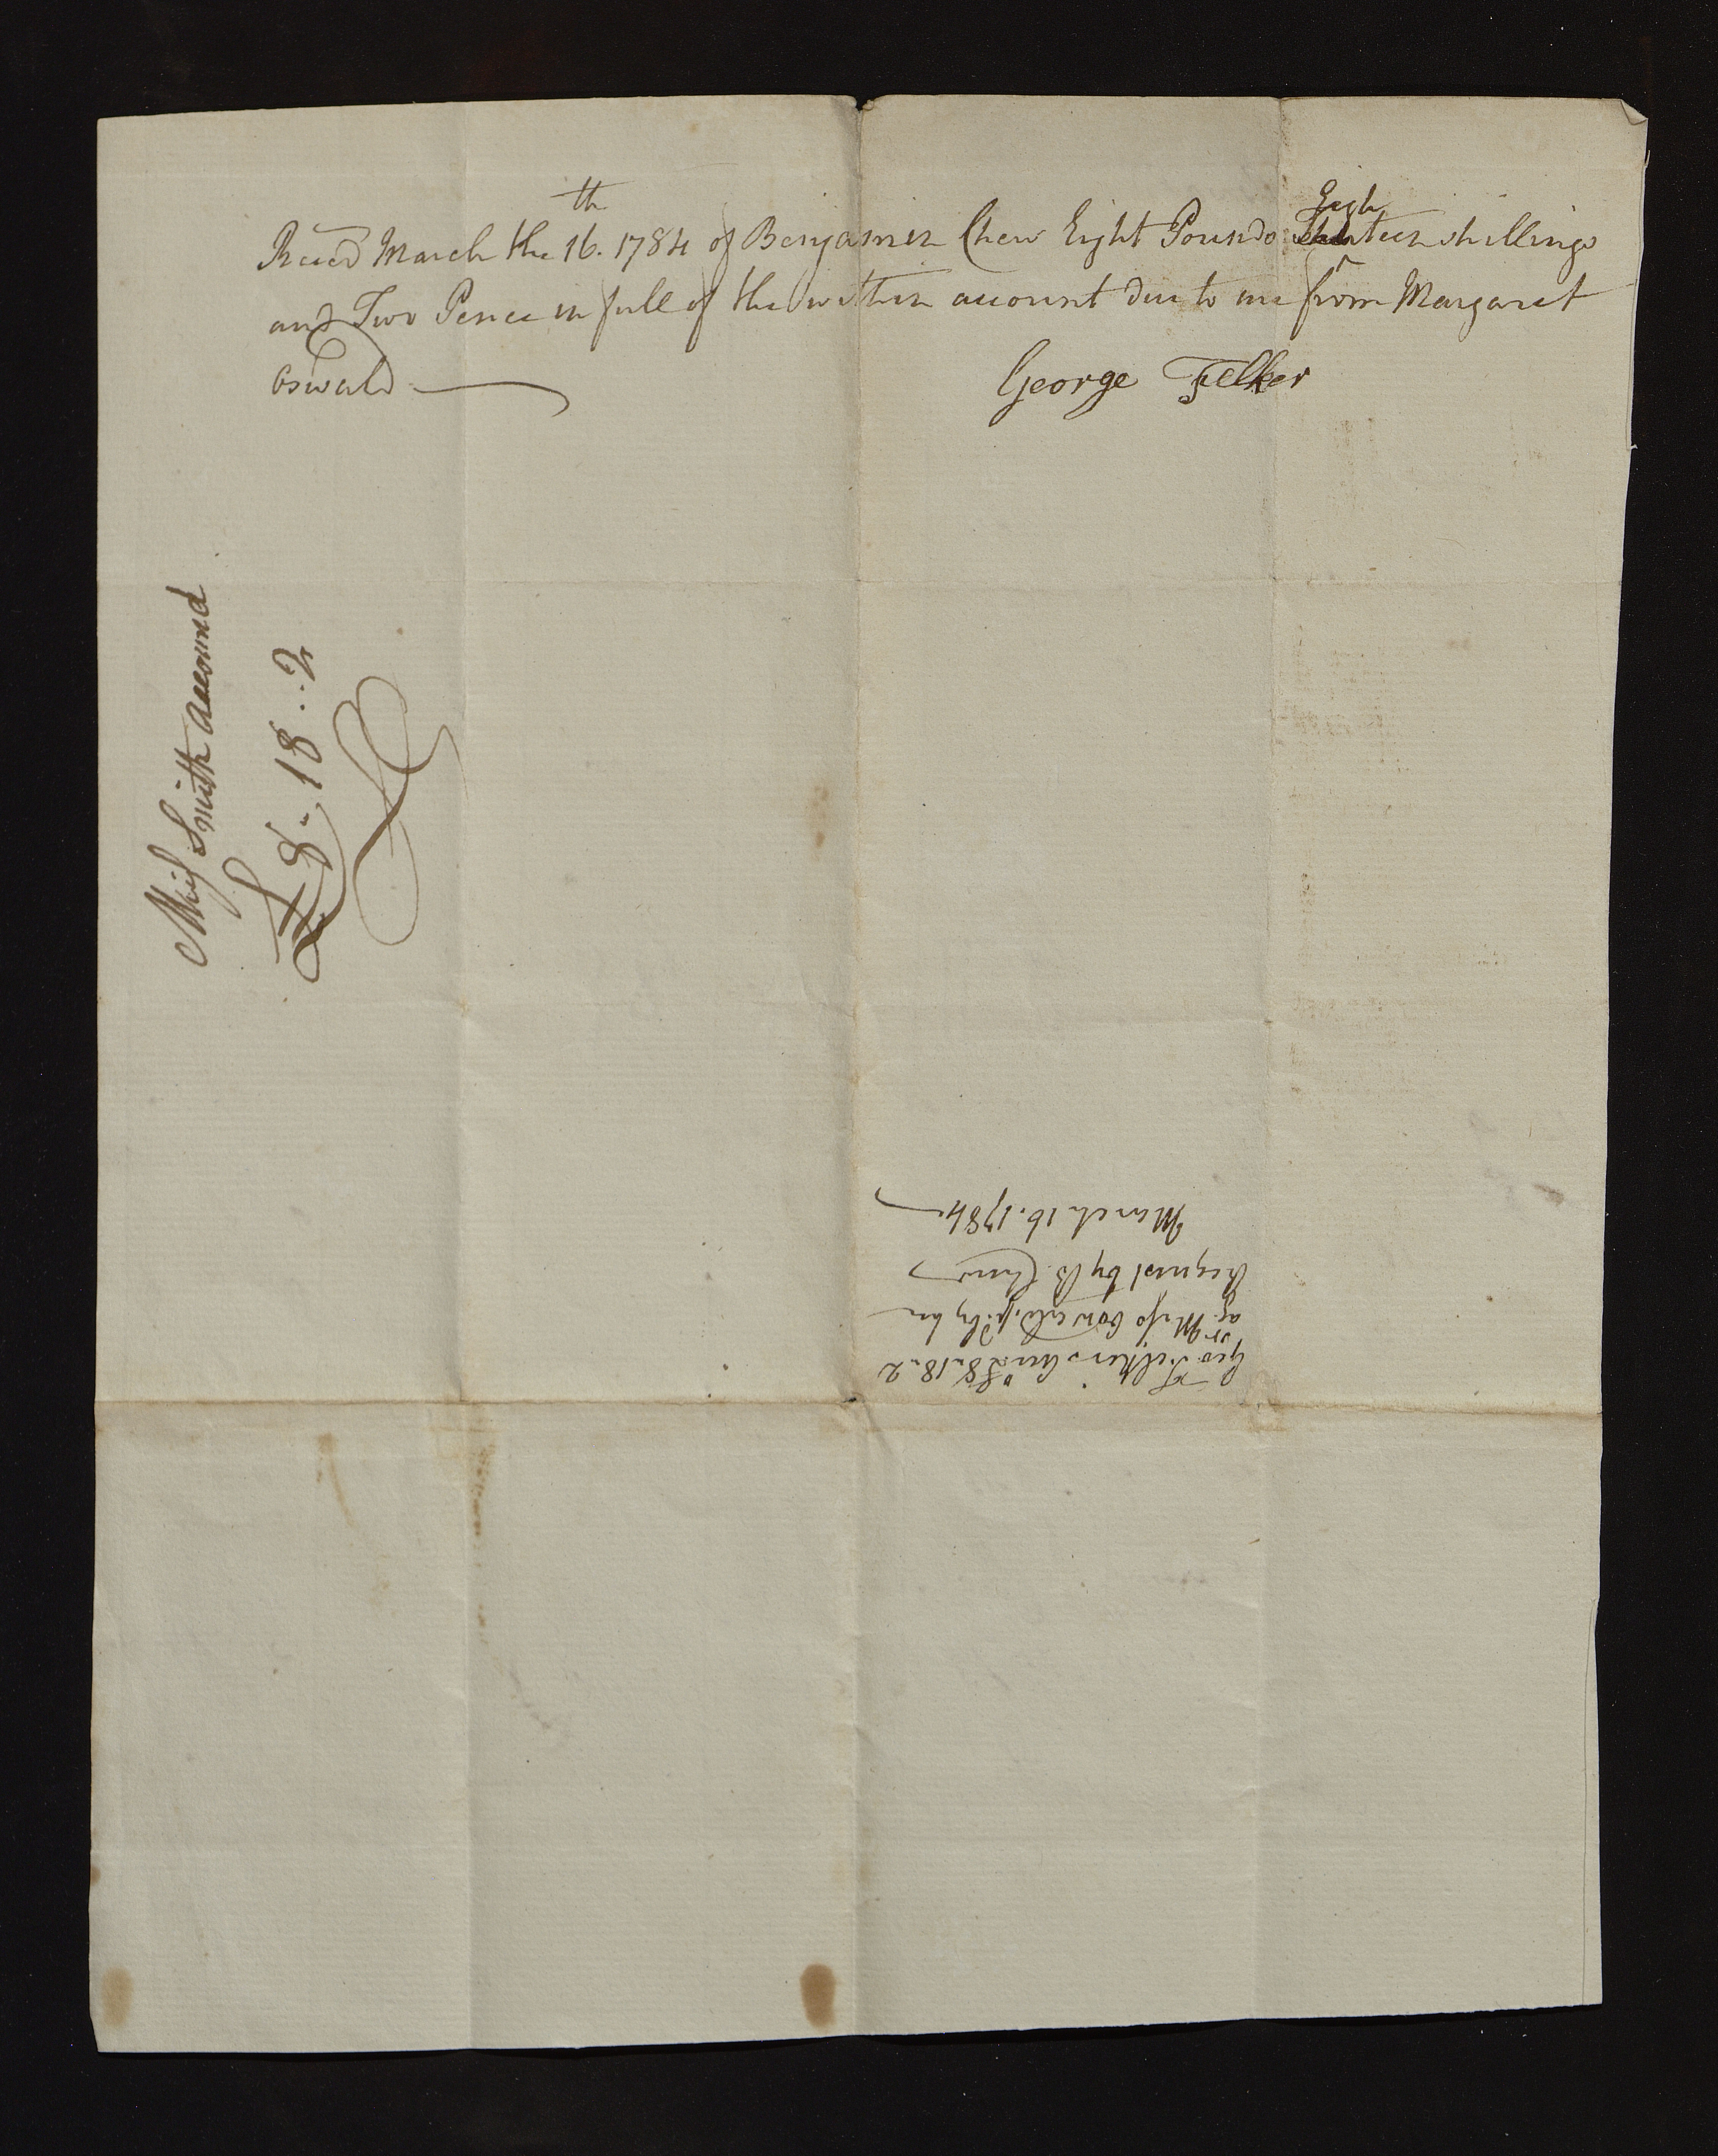 Receed March the 16th. 1784 of Benjamin Chew Eight Pounds Eighteen shillings
and Two Pence in full of the within account due to me from Margaret
Oswald
George Felker
Miss Smith Accound
£ 8 " 18 .. 2
Geo. Felker's Acct. £8..18..2
agt. Mrs. Oswald, pd. by her
Request by B. Chew
March 16. 1784